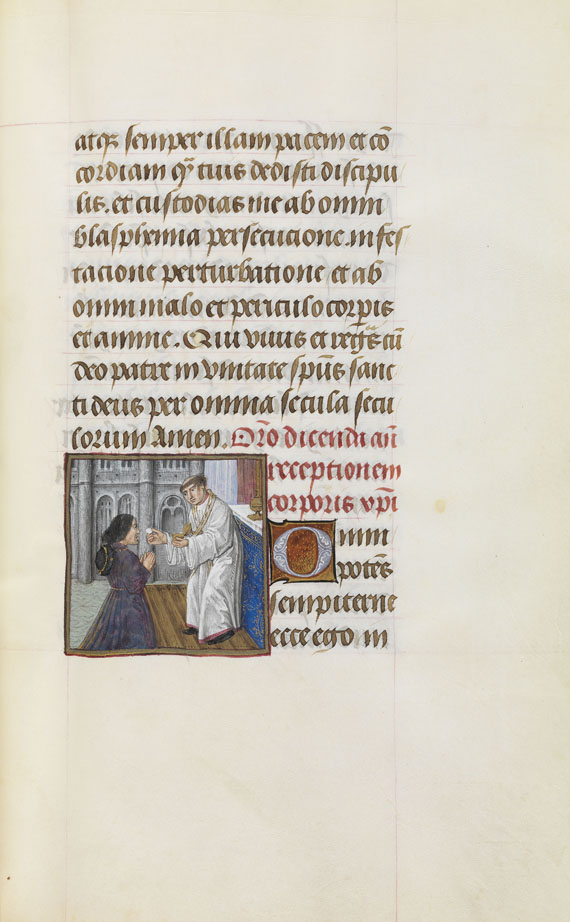 atq; semper illam pacem et cō
cordiam q̄ tuis dedisti discipu
lis. et custodias me ab omni
blasphemia persecucione. infes
tacione perturbatione et ab
omni malo et periculo corp̱is
et anime. Qui viuis et reg̃s cū
deo patre in vnitate sp̄us sanc
ti deus per omnia secula secu
lorum Amen. Or̄o dicenda añ
recceptionem
corporis xp̄i
Omni
potēs
sempiterne
ecce ego in